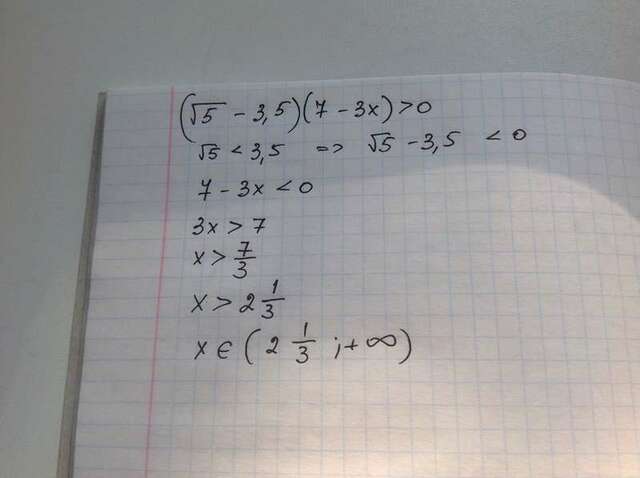 (√5 - 3,5)(7 - 3x) > 0
√5 < 3,5 => √5 - 3,5 < 0
7 - 3x < 0
3x > 7
x > 7/3
x > 2 1/3
x ∈ (2 1/3 ; +∞)